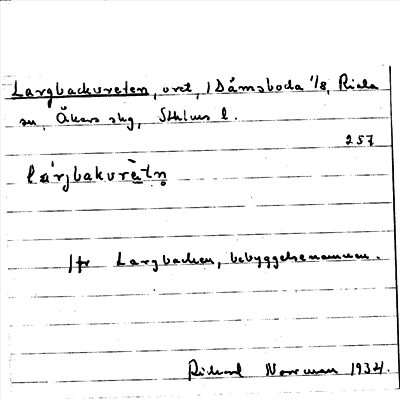 Largbackvreten, vret, / Dämsboda 1/8, Riala
sn, Åkers skg, Sthlms l.
257
lárjbakvrètn̥
Jfr Largbacken, bebyggelsenamnen.
Rickard Norrman 1934.